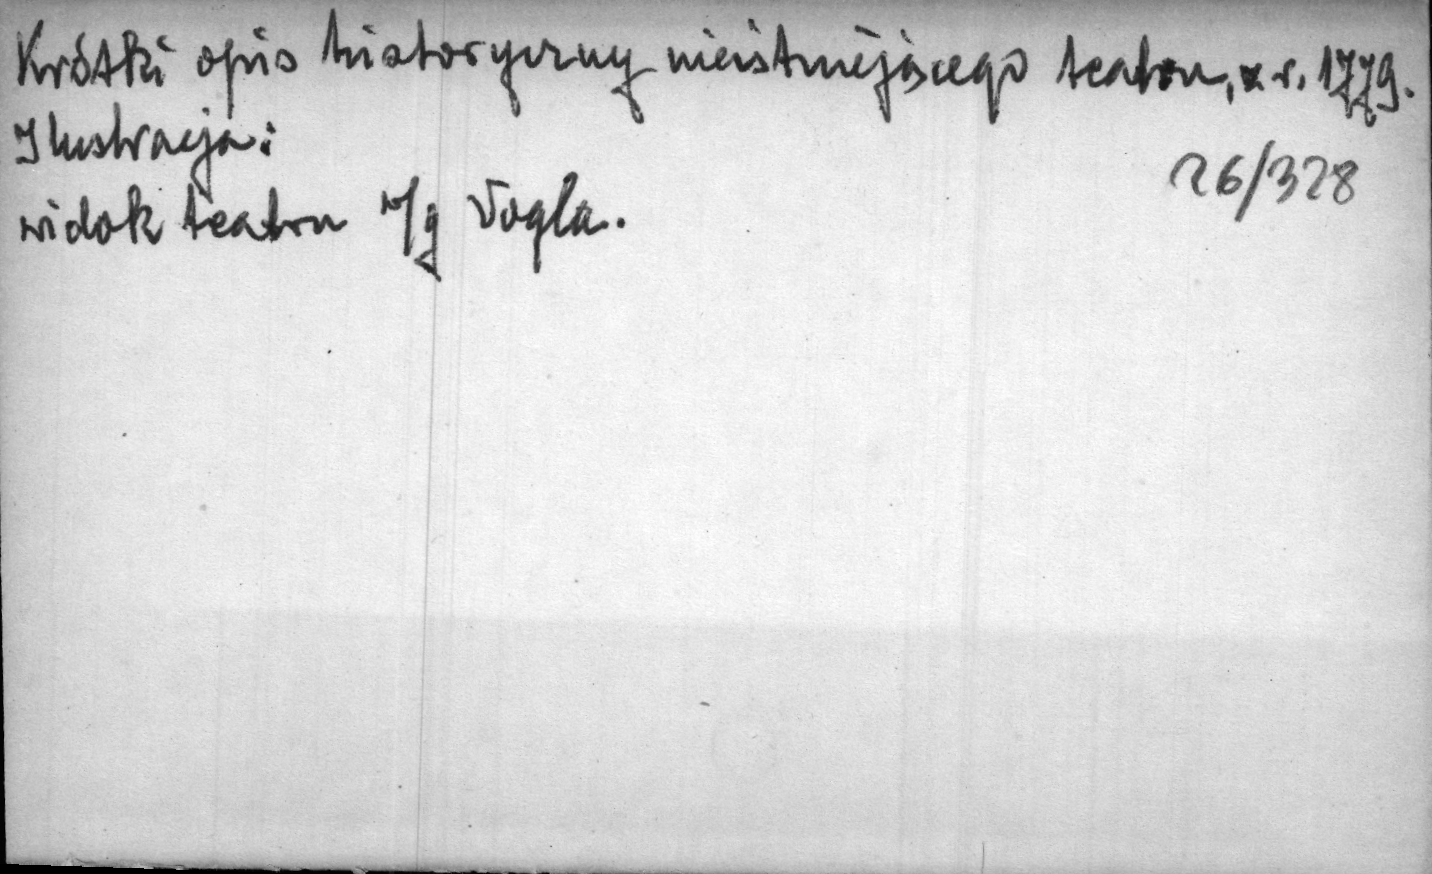 Krótki opis historyczny nieistniejącego teatru, z r. 1779.
Ilustracja:
26/328
widok teatru w/g Vogla.